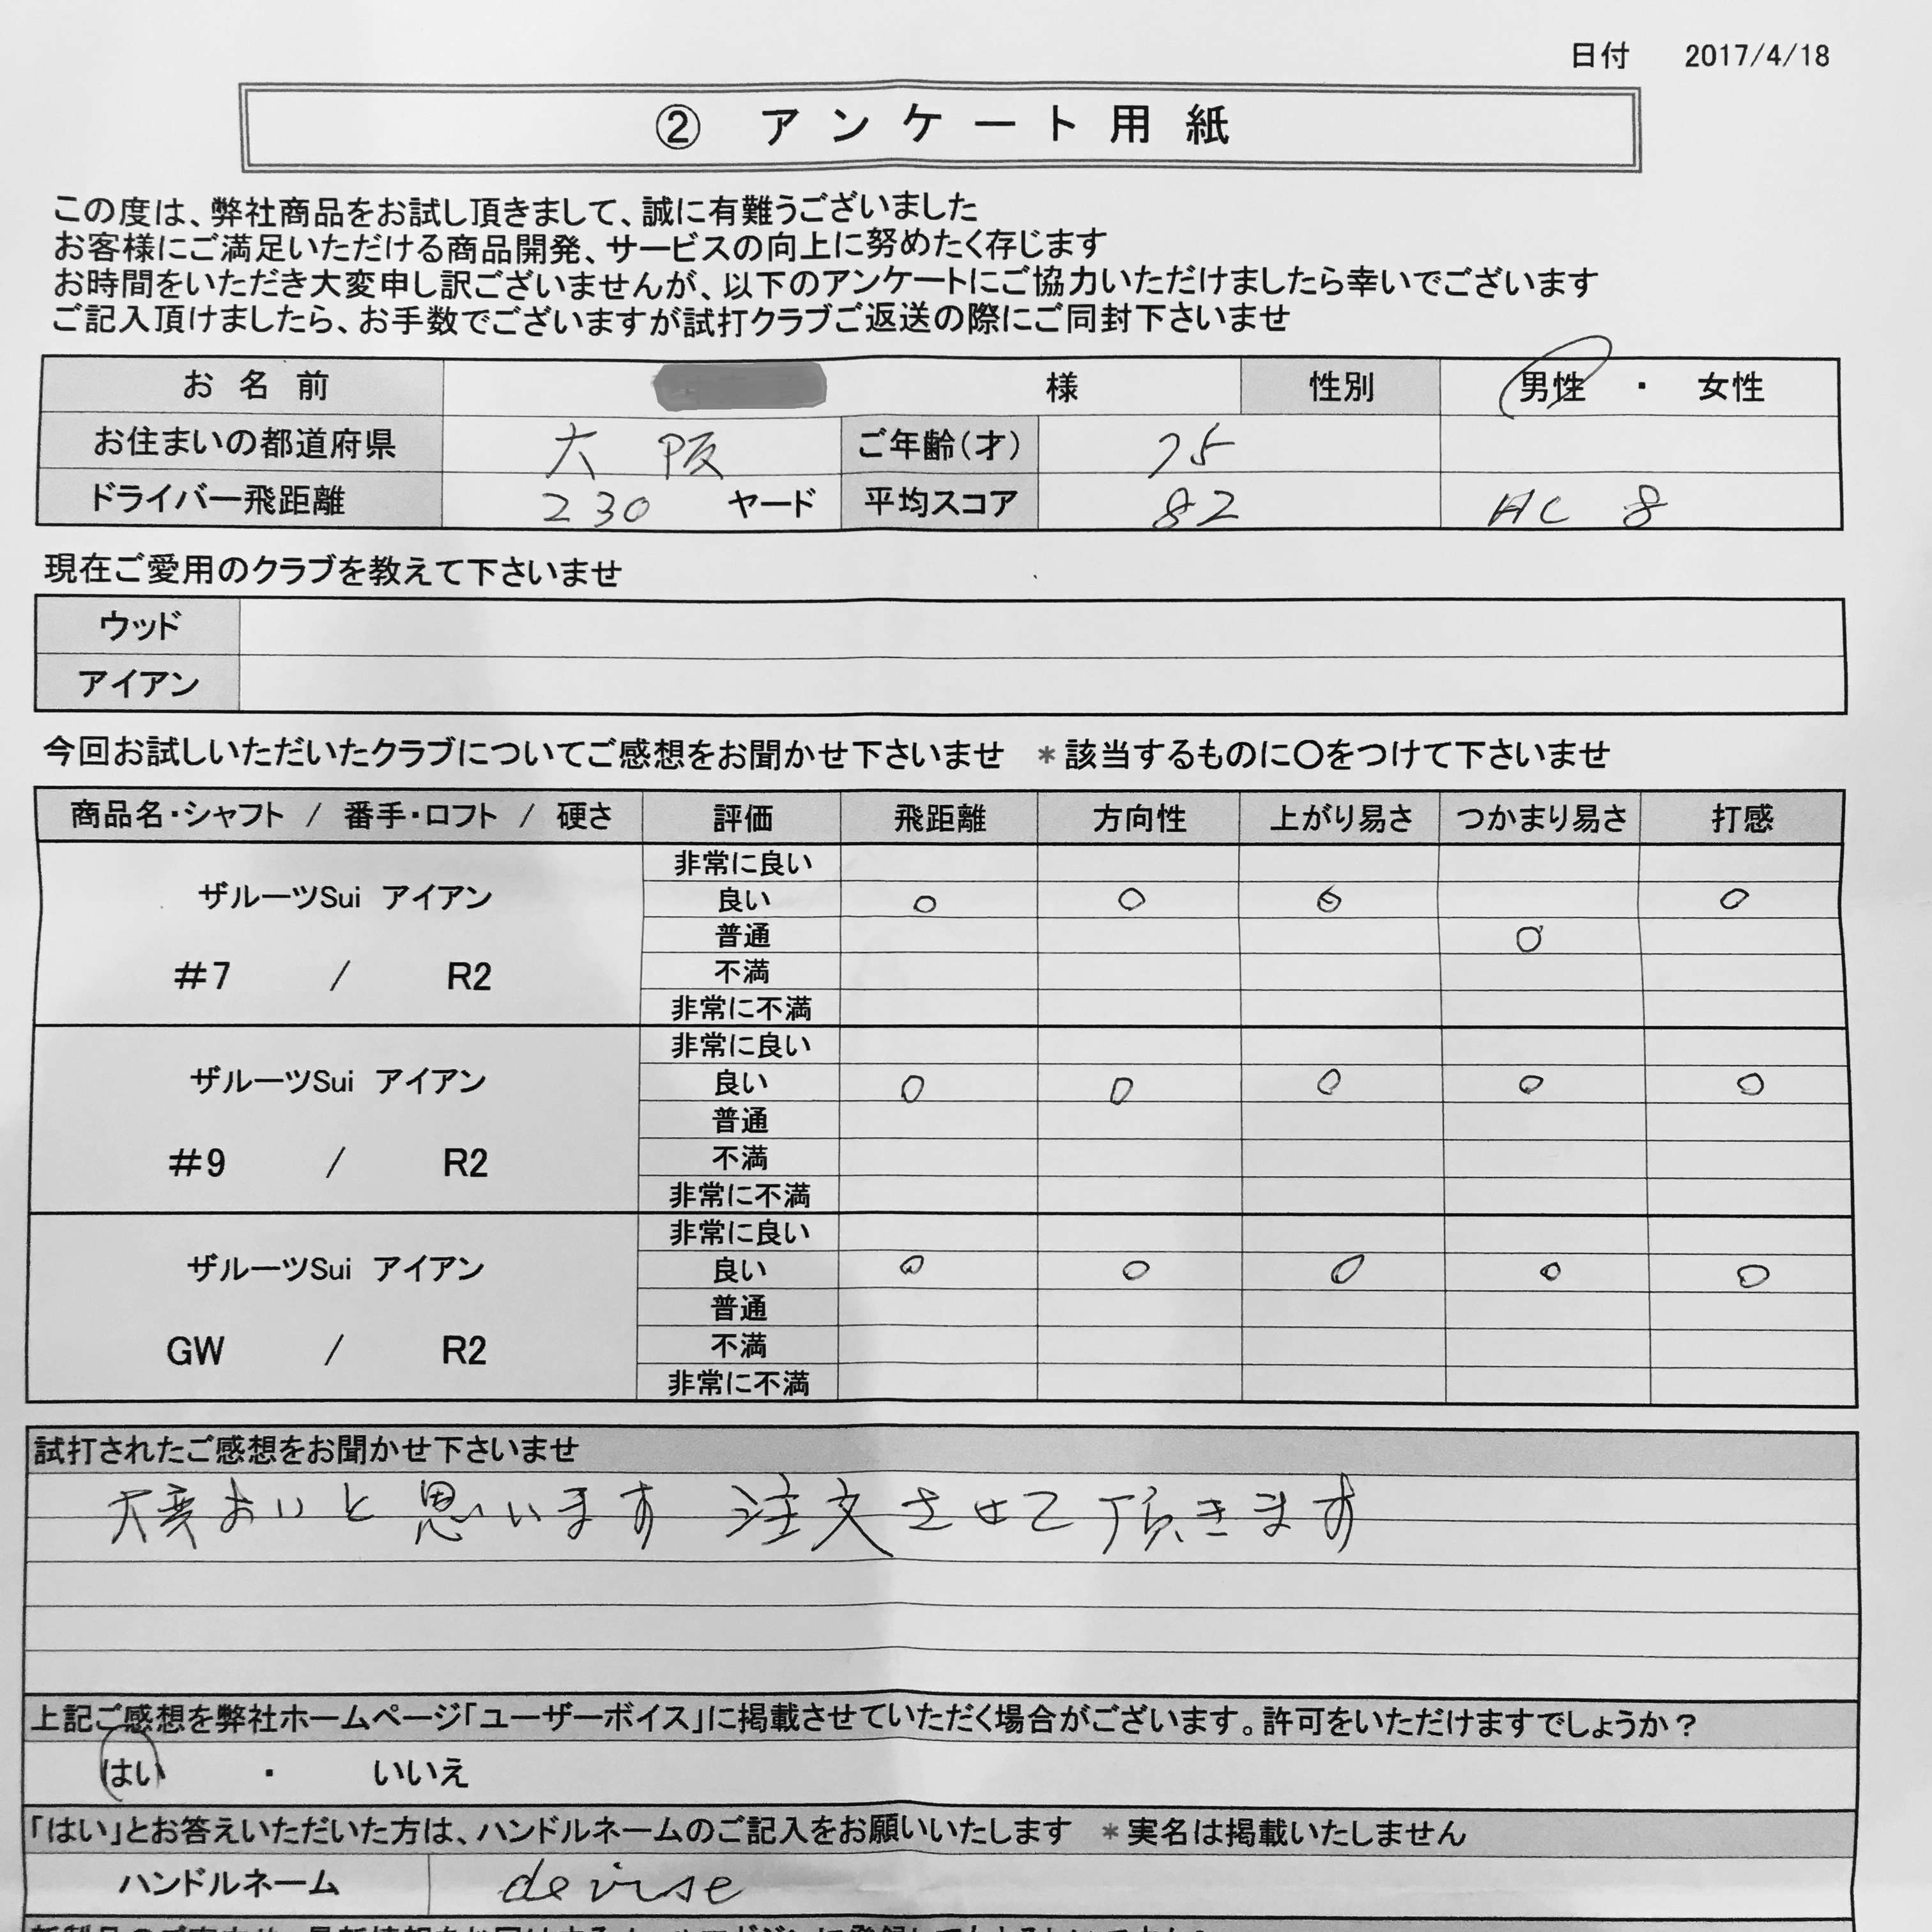 日付 2017/4/18
② アンケート用紙
この度は、弊社商品をお試し頂きまして、誠に有難うございました
お客様にご満足いただける商品開発、サービスの向上に努めたく存じます
お時間をいただき大変申し訳ございませんが、以下のアンケートにご協力いただけましたら幸いでございます
ご記入頂けましたら、お手数でございますが試打クラブご返送の際にご同封下さいませ
お名前 様 性別 男性 ・ 女性
お住まいの都道府県 大阪 ご年齢(才) 75
ドライバー飛距離 230 ヤード 平均スコア 82 HC 8
現在ご愛用のクラブを教えて下さいませ
ウッド
アイアン
今回お試しいただいたクラブについてご感想をお聞かせ下さいませ *該当するものに〇をつけて下さいませ
商品名・シャフト / 番手・ロフト / 硬さ 評価 飛距離 方向性 上がり易さ つかまり易さ 打感
非常に良い
ザルーツSui アイアン 良い 〇 〇 〇 〇
普通 〇
#7 / R2 不満
非常に不満
非常に良い
ザルーツSui アイアン 良い 〇 〇 〇 〇 〇
普通
#9 / R2 不満
非常に不満
非常に良い
ザルーツSui アイアン 良い 〇 〇 〇 〇 〇
普通
GW / R2 不満
非常に不満
試打されたご感想をお聞かせ下さいませ
大変よいと思います 注文させて頂きます
上記ご感想を弊社ホームページ「ユーザーボイス」に掲載させていただく場合がございます。許可をいただけますでしょうか?
はい ・ いいえ
「はい」とお答えいただいた方は、ハンドルネームのご記入をお願いいたします *実名は掲載いたしません
ハンドルネーム devise